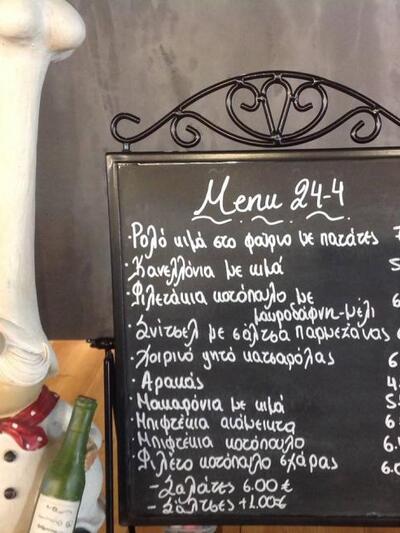 Menu 24-4
Ρολό κιμά στο φούρνο με πατάτες 7
· Κανελλόνια με κιμά 5
· Φιλετάκια κοτόπουλο με 6
μαυροδάφνη-μέλι
· Σνίτσελ με σάλτσα παρμεζάνας 6
· Χοιρινό ψητό κατσαρόλας 6
· Αρακάς 4.
· Μακαρόνια με κιμά 5.
· Μπιφτέκια ανάμεικτα 6.
· Μπιφτέκια κοτόπουλο 6.
· Φιλέτο κοτόπουλο σχάρας 6.0
- Σαλάτες 6.00€
- Σάλτσες +1.00€